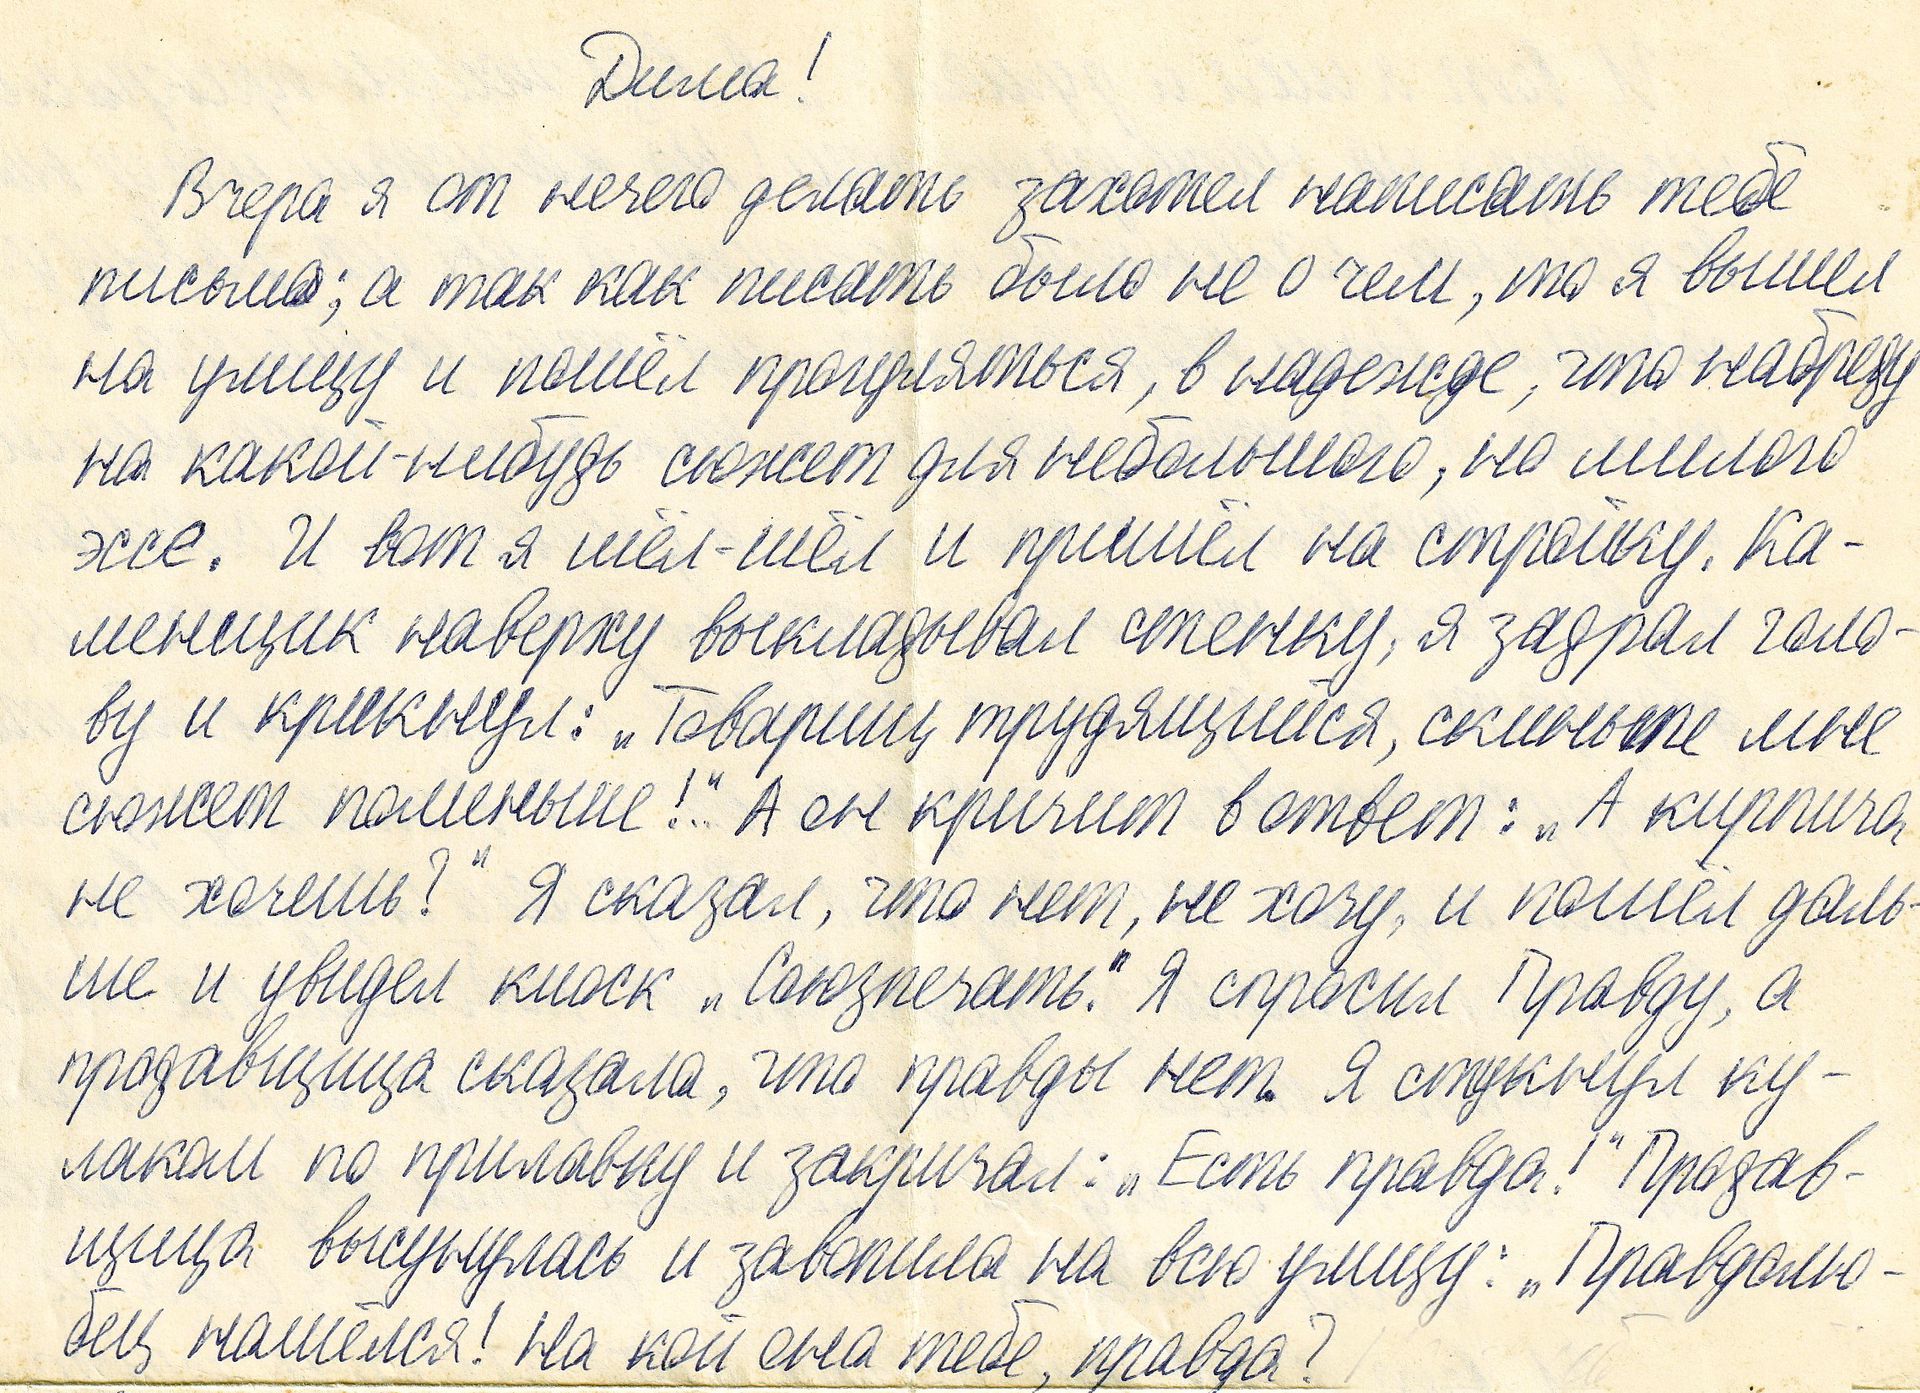 Дима!
Вчера я от нечего делать захотел написать тебе
письмо; а так как писать было не о чем, то я вышел
на улицу и пошёл прогуляться, в надежде, что набреду
на какой-нибудь сюжет для небольшого, но милого
эссе. И вот я шёл-шёл и пришёл на стройку. Ка-
менщик наверху выкладывал стенку, я задрал голо-
ву и крикнул: „Товарищ трудящийся, скиньте мне
сюжет поменьше!.." А он кричит в ответ: „А кирпича
не хочешь?" Я сказал, что нет, не хочу, и пошёл даль-
ше и увидел киоск „Союзпечать." Я спросил Правду, а
продавщица сказала, что правды нет. Я стукнул ку-
лаком по прилавку и закричал: „Есть правда!" Продав-
щица высунулась и завопила на всю улицу: „Правдолю-
бец нашёлся! На кой она тебе, правда?